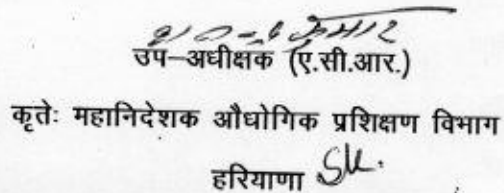 उप-अधीक्षक (ए.सी.आर.)
कृतेः महानिदेशक औधोगिक प्रशिक्षण विभाग
हरियाणा